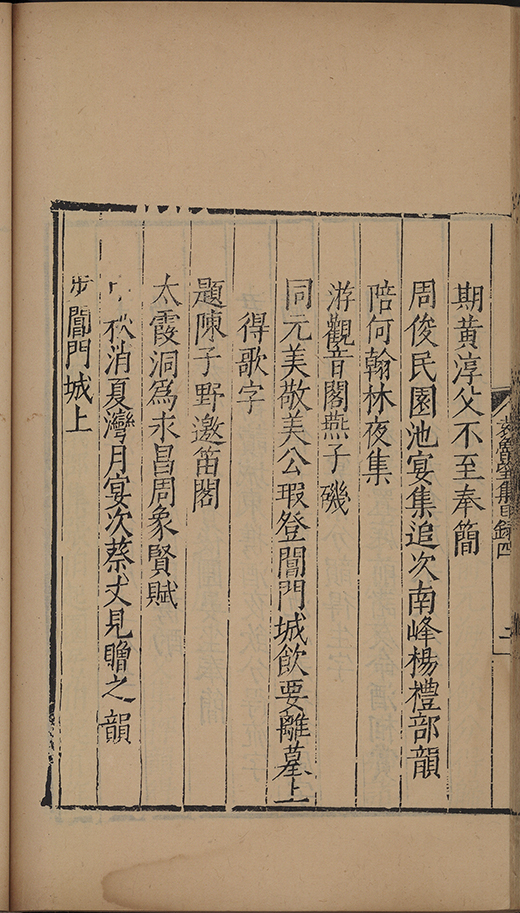 袁魯望集目錄四 二
期黃淳父不至奉簡
周俊民園池宴集追次南峰楊禮部韻
陪何翰林夜集
游觀音閣燕子磯
同元美敬美公瑕登閶門城飲要離墓上
得歌字
題陳子野邀笛閣
太霞洞爲永昌周象賢賦
秋消夏灣月宴次蔡丈見贈之韻
步閶門城上